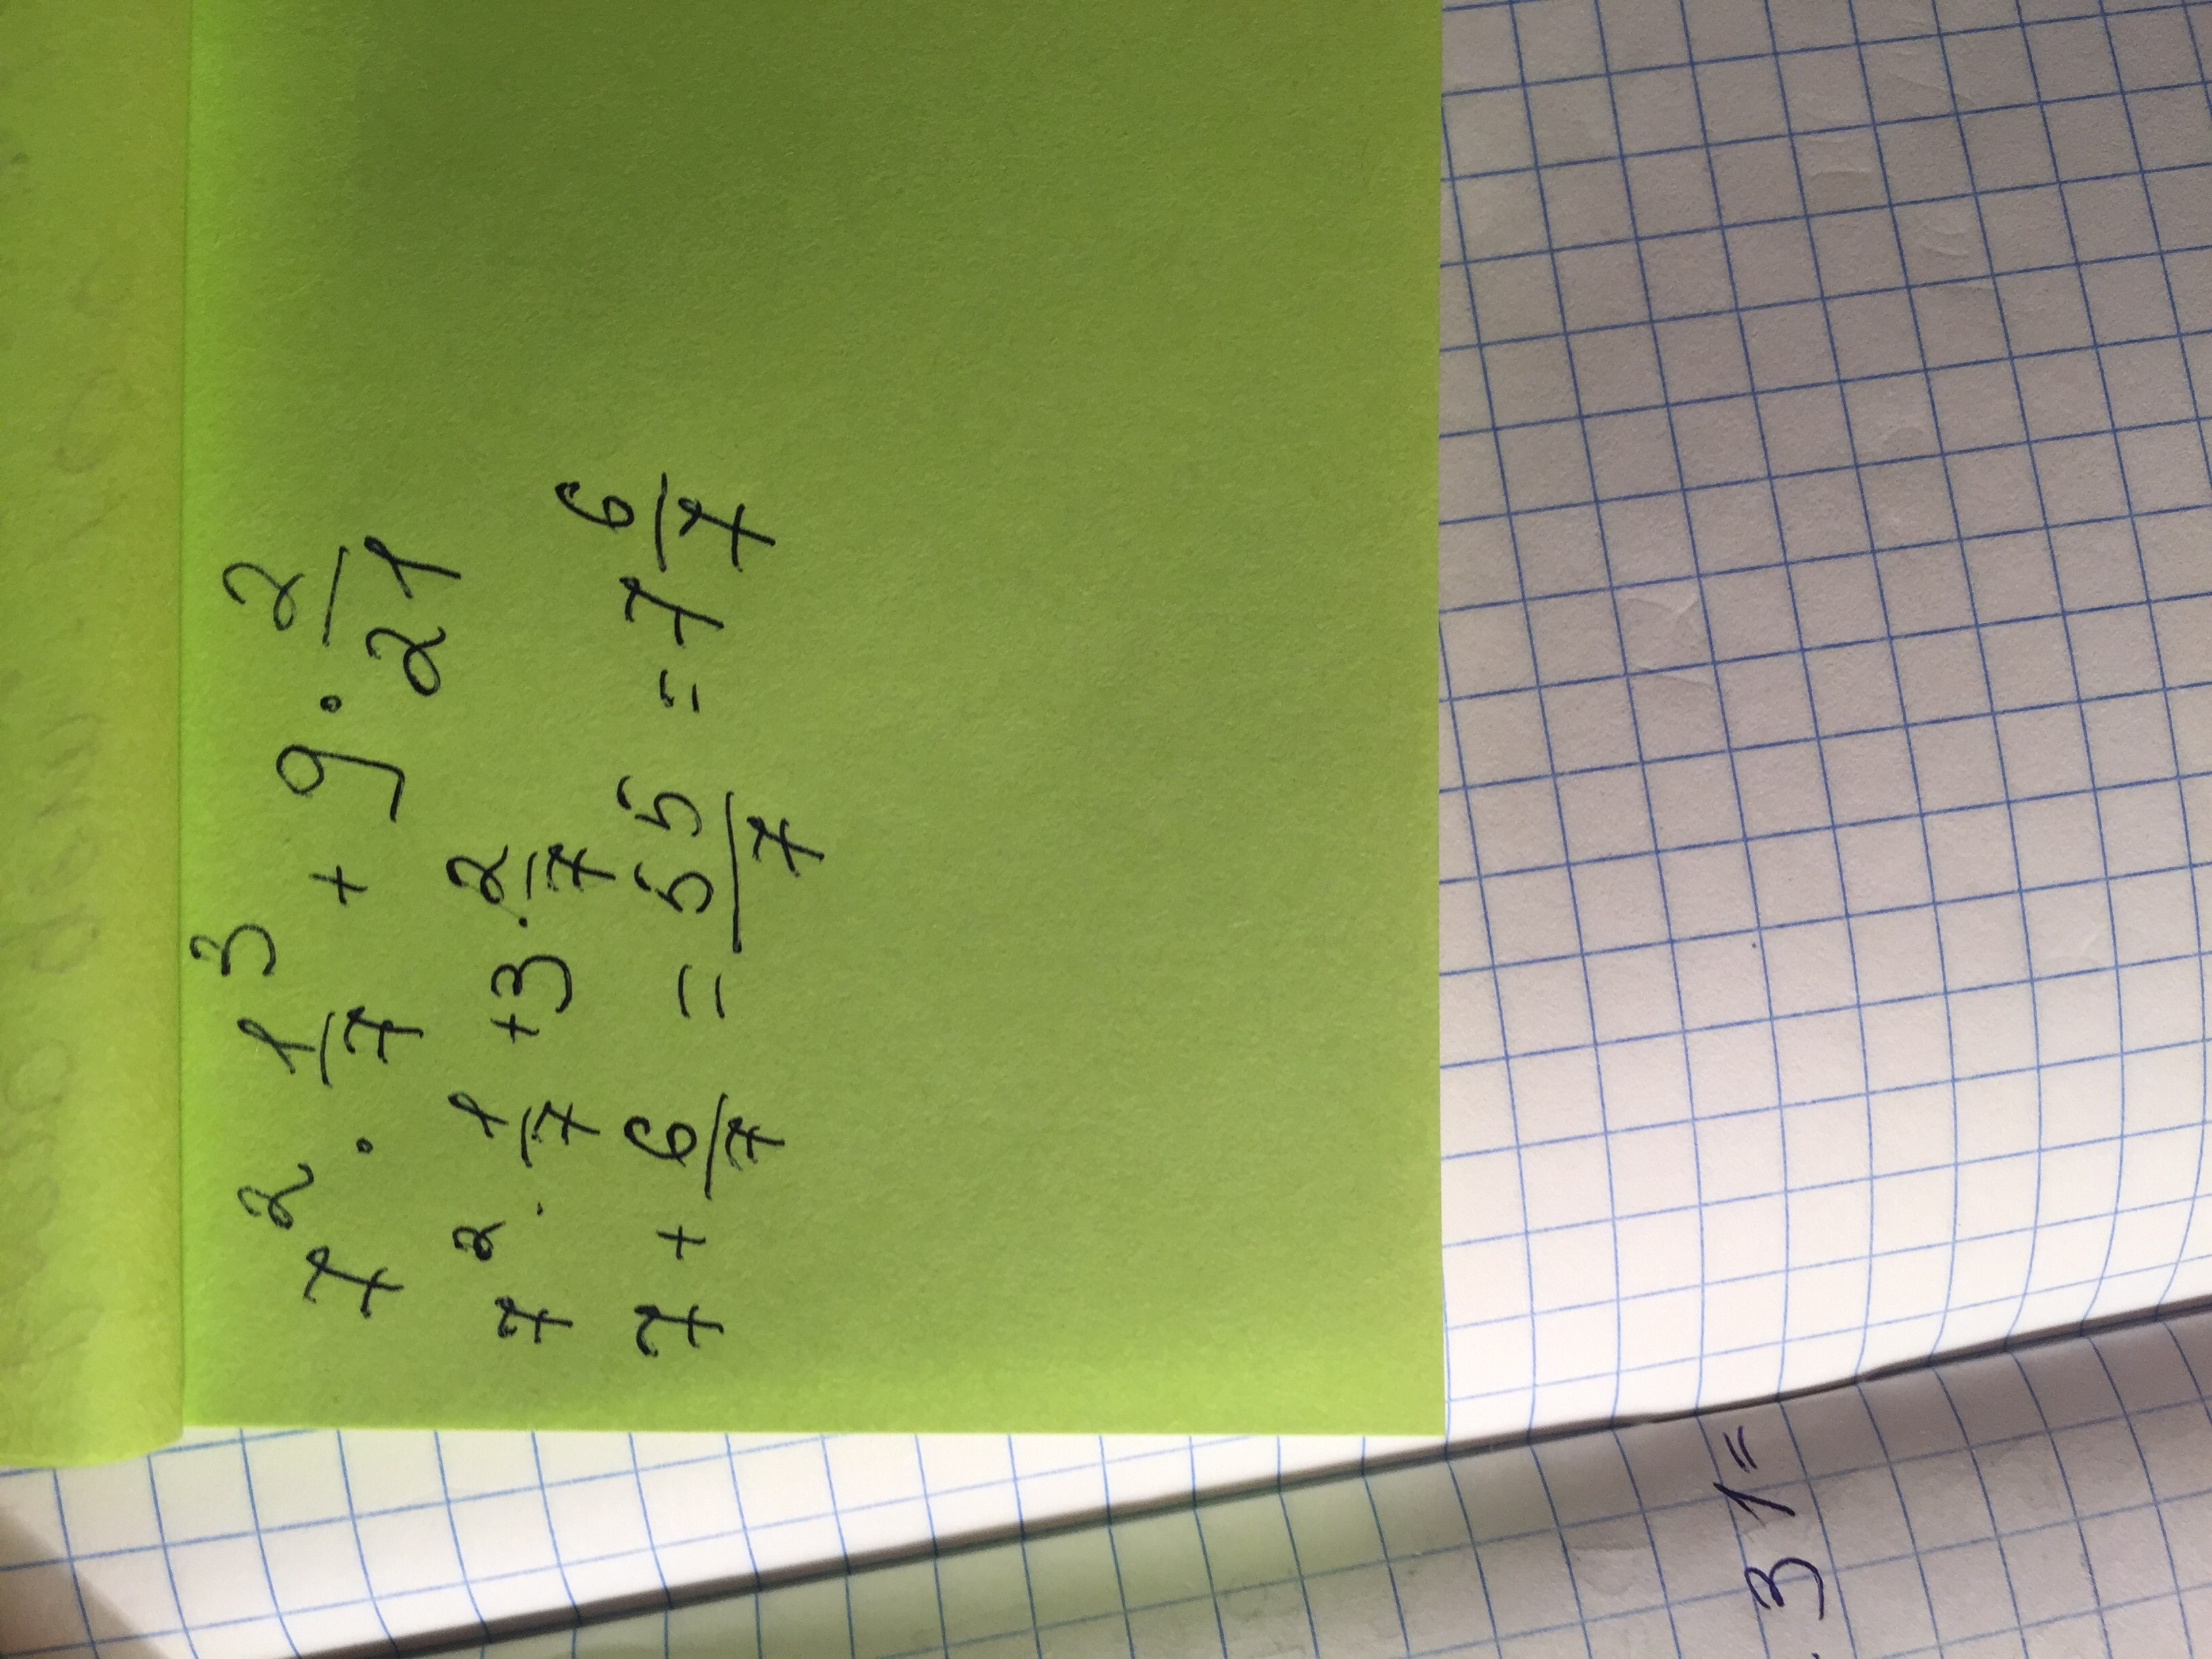 7² · 1/7 ³ + 9 · 2/21
7² · 1/7 + 3 · 2/7
7 + 6/7 = 55/7 = 7 6/7
31=